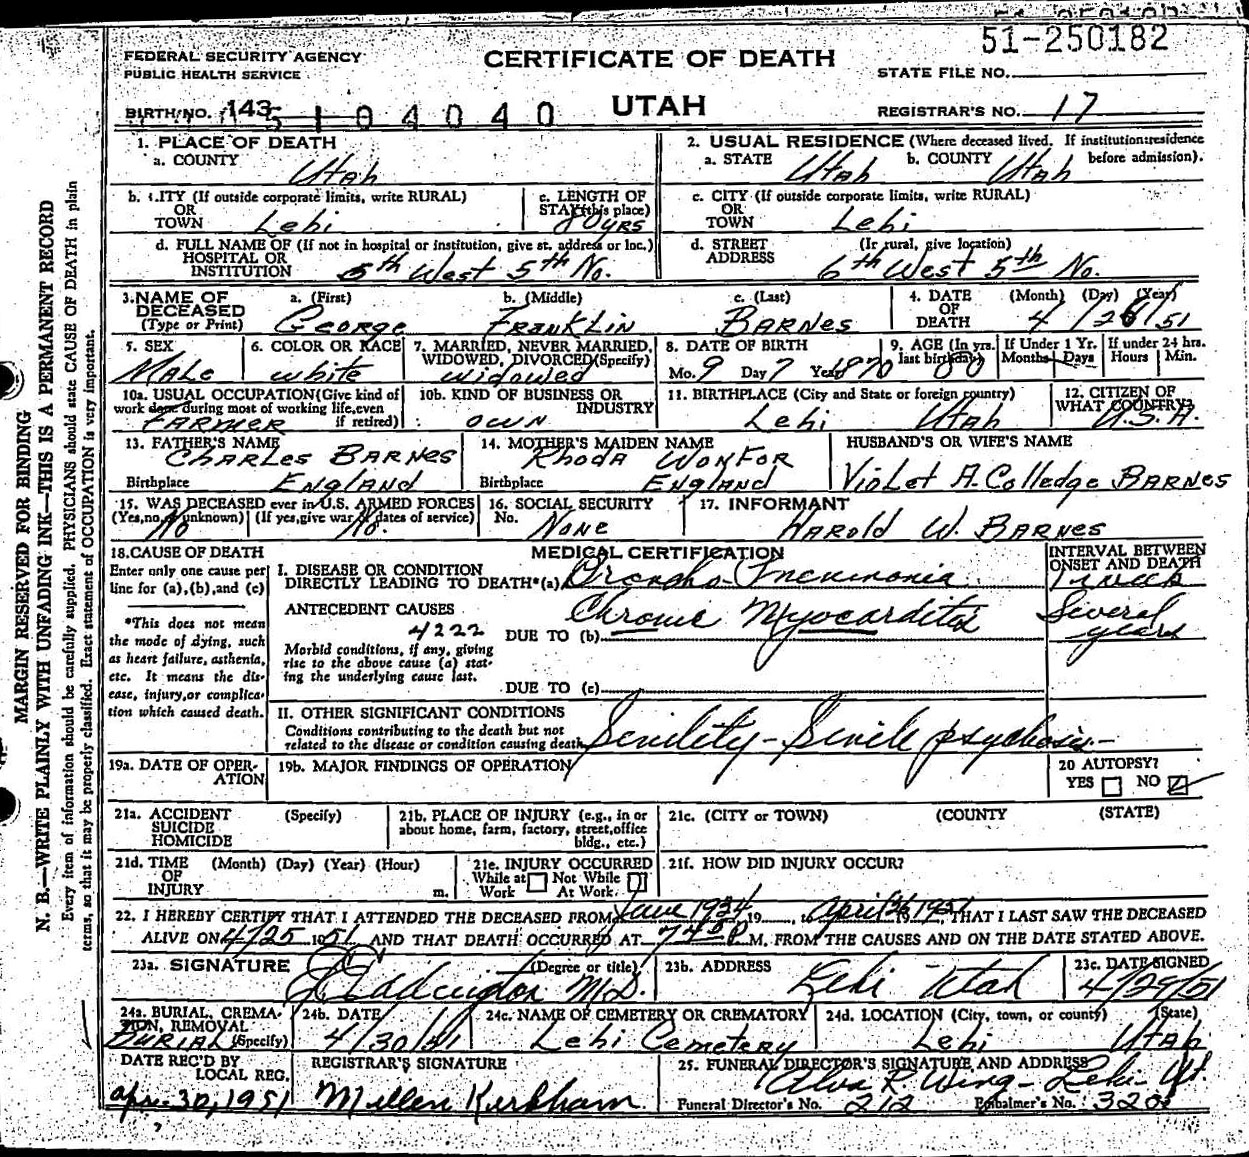 51-250182
FEDERAL SECURITY AGENCY
PUBLIC HEALTH SERVICE
CERTIFICATE OF DEATH
STATE FILE NO.
BIRTH NO. 143
104040
UTAH
REGISTRAR'S NO. 17
1. PLACE OF DEATH
a. COUNTY Utah
2. USUAL RESIDENCE (Where deceased lived. If institution:residence before admission).
a. STATE Utah b. COUNTY Utah
b. CITY (If outside corporate limits, write RURAL)
OR
TOWN Lehi
c. LENGTH OF
STAY (this place)
80 yrs
c. CITY (If outside corporate limits, write RURAL)
OR
TOWN Lehi
d. FULL NAME OF (If not in hospital or institution, give st. address or loc.)
HOSPITAL OR
INSTITUTION 5th West 5th No.
d. STREET (If rural, give location)
ADDRESS 6th West 5th No.
3. NAME OF DECEASED (Type or Print)
a. (First) George
b. (Middle) Franklin
c. (Last) Barnes
4. DATE OF DEATH
(Month) (Day) (Year)
4/26/51
5. SEX
Male
6. COLOR OR RACE
White
7. MARRIED, NEVER MARRIED,
WIDOWED, DIVORCED (Specify)
Widowed
8. DATE OF BIRTH
Mo. 9 Day 7 Year 1870
9. AGE (In yrs.
last birthday) 80
If Under 1 Yr.
Months Days
If under 24 hrs.
Hours Min.
10a. USUAL OCCUPATION (Give kind of
work done during most of working life, even
if retired)
Farmer
10b. KIND OF BUSINESS OR
INDUSTRY
own
11. BIRTHPLACE (City and State or foreign country)
Lehi Utah
12. CITIZEN OF
WHAT COUNTRY?
U.S.A.
13. FATHER'S NAME
Charles Barnes
Birthplace England
14. MOTHER'S MAIDEN NAME
Rhoda Wonfor
Birthplace England
HUSBAND'S OR WIFE'S NAME
Violet A. Colledge Barnes
15. WAS DECEASED ever in U.S. ARMED FORCES
(Yes, no, or unknown) (If yes, give war or dates of service)
No No.
16. SOCIAL SECURITY
No. None
17. INFORMANT
Harold W. Barnes
18. CAUSE OF DEATH
Enter only one cause per
line for (a), (b), and (c)
*This does not mean
the mode of dying, such
as heart failure, asthenia,
etc. It means the dis-
ease, injury, or complica-
tion which caused death.
MEDICAL CERTIFICATION
INTERVAL BETWEEN
ONSET AND DEATH
I. DISEASE OR CONDITION
DIRECTLY LEADING TO DEATH*(a) Broncho-Pneumonia
1 week
ANTECEDENT CAUSES
4222
DUE TO (b) Chronic Myocarditis
Several years
Morbid conditions, if any, giving
rise to the above cause (a) stat-
ing the underlying cause last.
DUE TO (c)
II. OTHER SIGNIFICANT CONDITIONS
Conditions contributing to the death but not
related to the disease or condition causing death.
Senility - Senile psychosis -
19a. DATE OF OPER-
ATION
19b. MAJOR FINDINGS OF OPERATION
20 AUTOPSY?
YES NO
21a. ACCIDENT (Specify)
SUICIDE
HOMICIDE
21b. PLACE OF INJURY (e.g., in or
about home, farm, factory, street, office
bldg., etc.)
21c. (CITY or TOWN) (COUNTY) (STATE)
21d. TIME (Month) (Day) (Year) (Hour)
OF
INJURY m.
21e. INJURY OCCURRED
While at Work
Not While At Work
21f. HOW DID INJURY OCCUR?
22. I HEREBY CERTIFY THAT I ATTENDED THE DECEASED FROM June 1934, 19, to April 26, 1951, THAT I LAST SAW THE DECEASED
ALIVE ON 4/25 1951 AND THAT DEATH OCCURRED AT 7:45 P M. FROM THE CAUSES AND ON THE DATE STATED ABOVE.
23a. SIGNATURE (Degree or title)
Eddington M.D.
23b. ADDRESS
Lehi Utah
23c. DATE SIGNED
4/29/51
24a. BURIAL, CREMA-
TION, REMOVAL
(Specify)
Burial
24b. DATE
4/30/51
24c. NAME OF CEMETERY OR CREMATORY
Lehi Cemetery
24d. LOCATION (City, town, or county) (State)
Lehi Utah
DATE REC'D BY
LOCAL REG.
Apr. 30, 1951
REGISTRAR'S SIGNATURE
Kirkham
25. FUNERAL DIRECTOR'S SIGNATURE AND ADDRESS
Alva R Wing - Lehi - Ut.
Funeral Director's No. 212 Embalmer's No. 320
MARGIN RESERVED FOR BINDING
N. B.—WRITE PLAINLY WITH UNFADING INK—THIS IS A PERMANENT RECORD
Every item of information should be carefully supplied. PHYSICIANS should state CAUSE OF DEATH in plain
terms, so that it may be properly classified. Exact statement of OCCUPATION is very important.